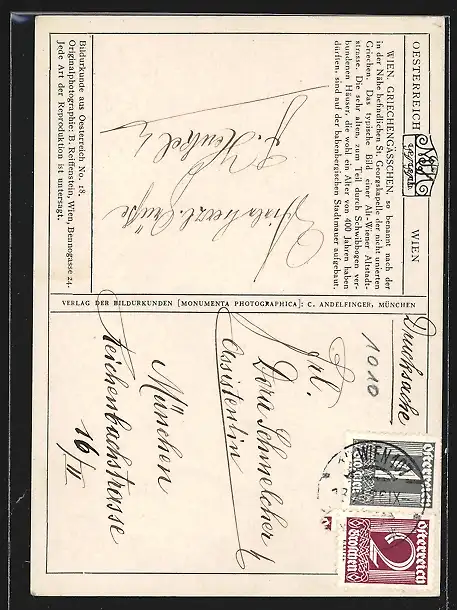 OESTERREICH
WIEN
WIEN. GRIECHENGÄSSCHEN, so benannt nach der
in der Nähe befindlichen St. Georgskapelle der nicht unierten
Griechen. Das typische Bild einer Alt-Wiener Altstadt-
strasse. Die sehr alten, zum Teil durch Schwibbogen ver-
bundenen Häuser, die wohl ein Alter von 400 Jahren haben
dürften, sind auf der Babenbergischen Stadtmauer aufgebaut.
Viele herzl. Grüße
Bildurkunde aus Oesterreich No. 18.
Originalphotographie: B. Reiffenstein, Wien, Bennogasse 24.
Jede Art der Reproduktion ist untersagt.
VERLAG DER BILDURKUNDEN [MONUMENTA PHOTOGRAPHICA]: C. ANDELFINGER, MÜNCHEN
Drucksache
1010
Frl.
Dora Schmelcher
Assistentin
München
Reichenbachstrasse
16/II
WIEN
Österreich
1
Groschen
Österreich
2
Groschen